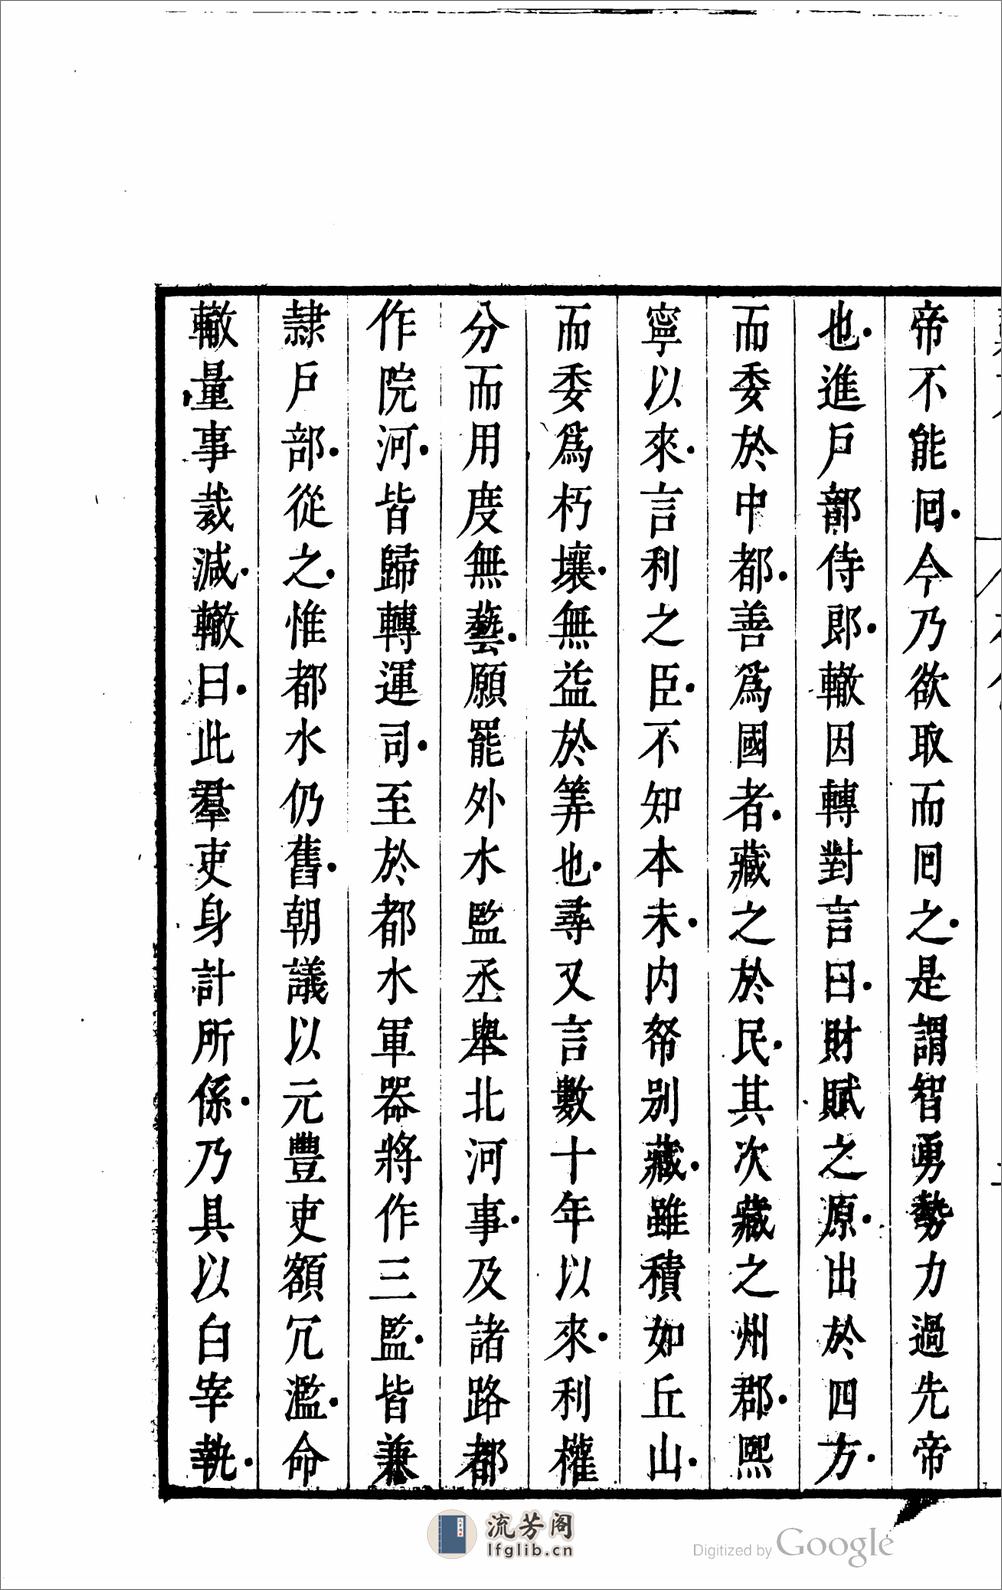 帝不能囘今乃欲取而囘之是謂智勇勢力過先帝
也進戸部侍郎轍因轉對言曰財賦之原出於四方
而委於中都善爲國者藏之於民其次藏之州郡熙
寧以來言利之臣不知本末内帑别藏雖積如丘山
而委爲朽壤無益於筭也尋又言數十年以來利權
分而用度無藝願罷外水監丞舉北河事及諸路都
作院河皆歸轉運司至於都水軍器將作三監皆兼
隷戸部從之惟都水仍舊朝議以元豐吏額冗濫命
轍量事裁減轍曰此羣吏身計所係乃具以白宰執
流芳阁
lfglib.cn
Digitized by Google